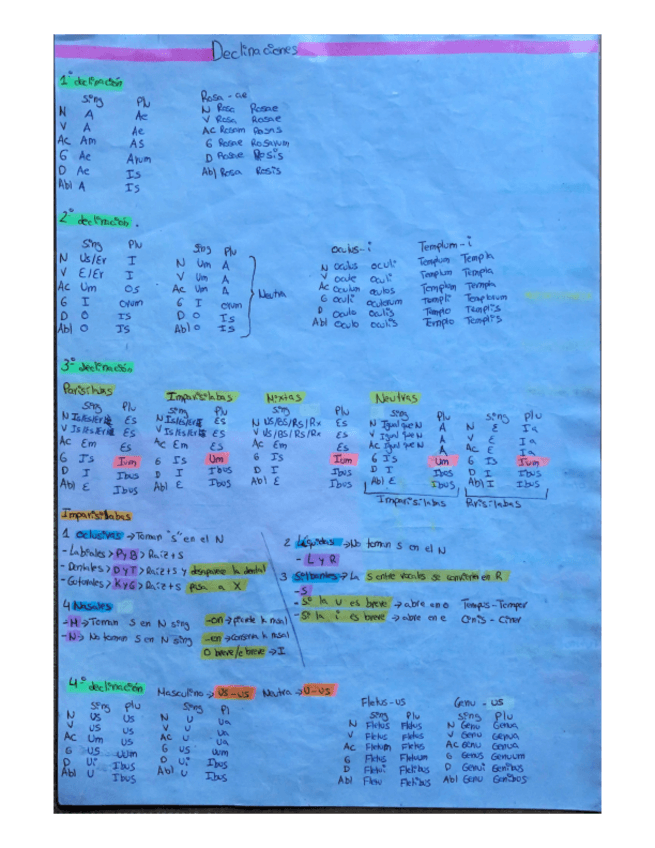 Declinaciones
1º declinación
Sing Plu Rosa - ae
N A Ae N Rosa Rosae
V A Ae V Rosa Rosae
Ac Am AS Ac Rosam Rosas
G Ae Arum G Rosae Rosarum
D Ae Is D Rosae Rosis
Abl A Is Abl Rosa Rosis
2º declinación.
Sing Plu Sing Plu Oculus-i Templum-i
N Us/Er I N Um A Neutra N Oculus Oculi Templum Templa
V E/Er I V Um A V Ocule Oculi Templum Templa
Ac Um Os Ac Um A Ac Oculum Oculos Templum Templa
G I Orum G I Orum G Oculi Oculorum Templi Templorum
D O Is D O Is D Oculo Oculis Templo Templis
Abl O Is Abl O Is Abl Oculo Oculis Templo Templis
3º declinación
Parisílabas Imparisílabas Mixtas Neutras
Sing Plu Sing Plu Sing Plu Sing Plu Sing Plu
N Is/es/er Es N Is/es/er Es N US/BS/RS/Rx Es N Igual que N A N E Ia
V Is/es/er Es V Is/es/er Es V US/BS/RS/Rx Es V Igual que N A V E Ia
Ac Em Es Ac Em Es Ac Em Es Ac Igual que N A Ac E Ia
G Is Ium G Is Um G Is Ium G Is Um G Is Ium
D I Ibus D I Ibus D I Ibus D I Ibus D I Ibus
Abl E Ibus Abl E Ibus Abl E Ibus Abl E Ibus Abl I Ibus
Imparisílabas Parisílabas
Imparisílabas
1 Oclusivas → Toman "s" en el N
- Labiales > P y B > Raíz + S
- Dentales > D y T > Raíz + S y desaparece la dental
- Guturales > K y G > Raíz + S pasa a X
4 Nasales
- M → Toman S en N sing -on → pierde la nasal
- N → No toman S en N sing -en → conserva la nasal
O breve/e breve → I
2 Líquidas → No toman S en el N
- L y R
3 Silbantes → La S entre vocales se convierte en R
- S
- Si la u es breve → abre en o Tempus-Tempor
- Si la i es breve → abre en e Cinis - Ciner
4º declinación Masculino → us-us Neutra → U-us
Sing Plu Sing Pl Fletus-us Genu - us
N US US N U Ua Sing Plu Sing Plu
V US US V U Ua N Fletus Fletus N Genu Genua
Ac Um US Ac U Ua V Fletus Fletus V Genu Genua
G US UUm G US UUm Ac Fletum Fletus Ac Genu Genua
D Ui Ibus D Ui Ibus G Fletus Fletuum G Genus Genuum
Abl U Ibus Abl U Ibus D Fletui Fletibus D Genui Genibus
Abl Fletu Fletibus Abl Genu Genibus